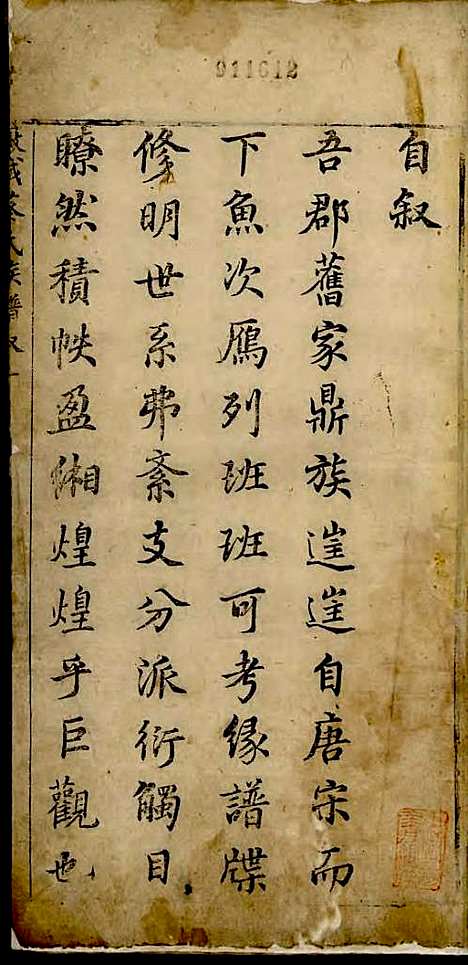 911612
自叙
吾郡舊家鼎族遑遑自唐宋而
下魚次鴈列班班可考緣譜牒
修明世系弗紊支分派衍觸目
瞭然積帙盈緗煌煌乎巨觀也
氏族譜